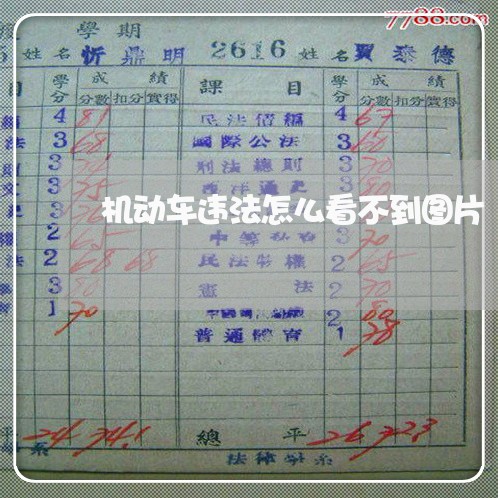 7788.com
學期
姓名 忻鼎明 2616 姓名 賈泰德
目 學分 成績 課目 學分 成績
分數 扣分 實得 分數 扣分 實得
4 81 民法債編 4 67
法 3 68 國際公法 3 60
則 3 刑法總則 3 70
3 75 西洋通史 3 80
機动车违法怎么看不到图片
2 65 3 70
法 2 68 68 民法物權 2 65
3 80 憲法 2 70
1 70 2 80
普通體育 1 78
平 24 74.1 總平 26 72.3
系 法律學系